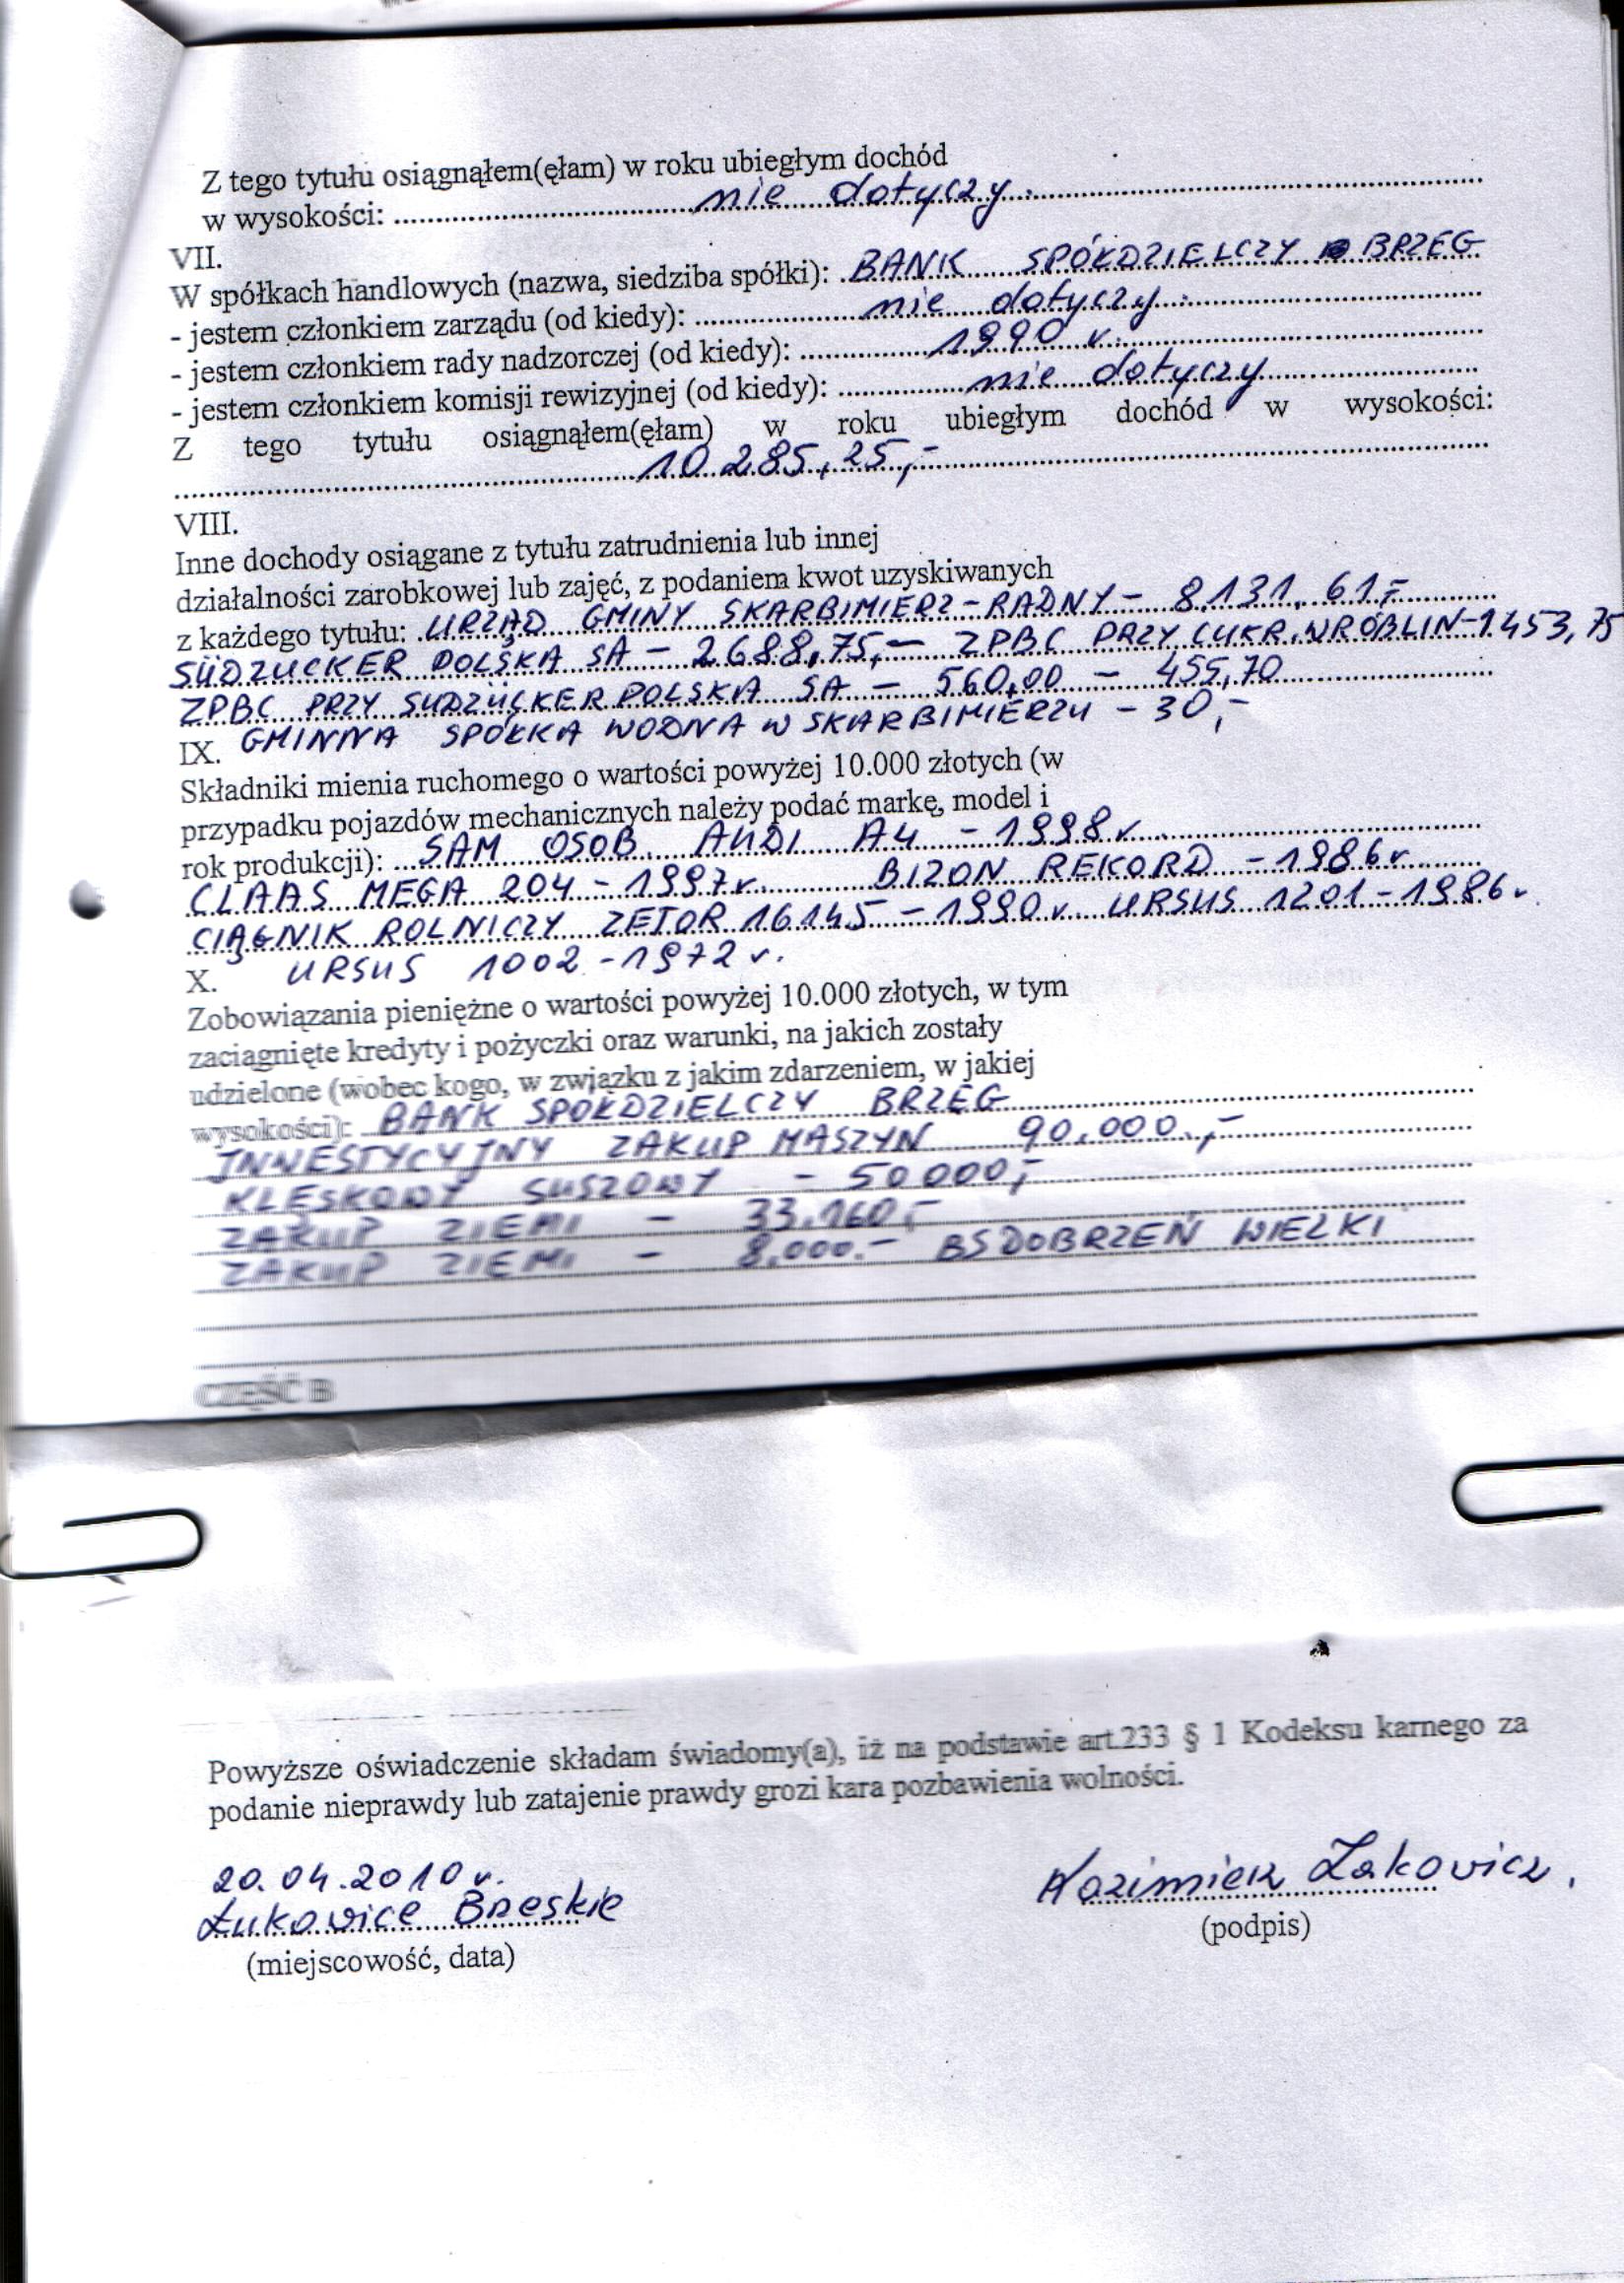 Z tego tytułu osiągnąłem(ęłam) w roku ubiegłym dochód
w wysokości: nie dotyczy.
VII.
W spółkach handlowych (nazwa, siedziba spółki): BANK SPÓŁDZIELCZY BRZEG
- jestem członkiem zarządu (od kiedy): nie dotyczy.
- jestem członkiem rady nadzorczej (od kiedy): 1990 r.
- jestem członkiem komisji rewizyjnej (od kiedy): nie dotyczy
Z tego tytułu osiągnąłem(ęłam) w roku ubiegłym dochód w wysokości:
10 285,25,-
VIII.
Inne dochody osiągane z tytułu zatrudnienia lub innej
działalności zarobkowej lub zajęć, z podaniem kwot uzyskiwanych
z każdego tytułu: URZĄD GMINY SKARBIMIERZ - RADNY - 8131,61,-
SÜDZUCKER POLSKA SA - 2688,75,- ZPBC PRZY CUKR. WRÓBLIN - 1453,75
ZPBC PRZY SUDZÜCKER POLSKA SA - 560,00 - 455,70
IX. GMINNA SPÓŁKA WODNA W SKARBIMIERZU - 30,-
Składniki mienia ruchomego o wartości powyżej 10.000 złotych (w
przypadku pojazdów mechanicznych należy podać markę, model i
rok produkcji): SAM OSOB. AUDI A4 - 1998 r.
CLAAS MEGA 204 - 1997 r. BIZON REKORD - 1986 r
CIĄGNIK ROLNICZY ZETOR 16145 - 1990 r URSUS 1201 - 1986 r
X. URSUS 1002 - 1972 r.
Zobowiązania pieniężne o wartości powyżej 10.000 złotych, w tym
zaciągnięte kredyty i pożyczki oraz warunki, na jakich zostały
udzielone (wobec kogo, w związku z jakim zdarzeniem, w jakiej
wysokości): BANK SPÓŁDZIELCZY BRZEG
INWESTYCYJNY ZAKUP MASZYN 90.000,-
KLĘSKOWY SUSZOWY - 50000,-
ZAKUP ZIEMI - 33.160,-
ZAKUP ZIEMI - 8.000.- BS DOBRZEŃ WIELKI
CZĘŚĆ B
Powyższe oświadczenie składam świadomy(a), iż na podstawie art.233 § 1 Kodeksu karnego za
podanie nieprawdy lub zatajenie prawdy grozi kara pozbawienia wolności.
20.04.2010 r.
Łukowice Brzeskie
(miejscowość, data)
Kazimierz Żakowicz.
(podpis)